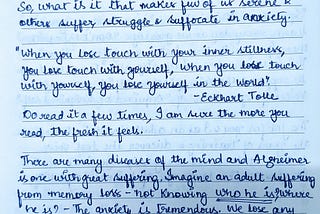 So, what is it that makes few of us serene &
others suffer, struggle & suffocate in anxiety.
"When you lose touch with your inner stillness,
you lose touch with yourself, when you lose touch
with yourself, you lose yourself in the world".
-Eckhart Tolle
Do read it a few times, I am sure the more you
read, the fresh it feels.
There are many diseases of the mind and Alzheimer
is one with great suffering. Imagine an adult suffering
from memory loss - not knowing who he is? where
he is? - The anxiety is tremendous. We lose any